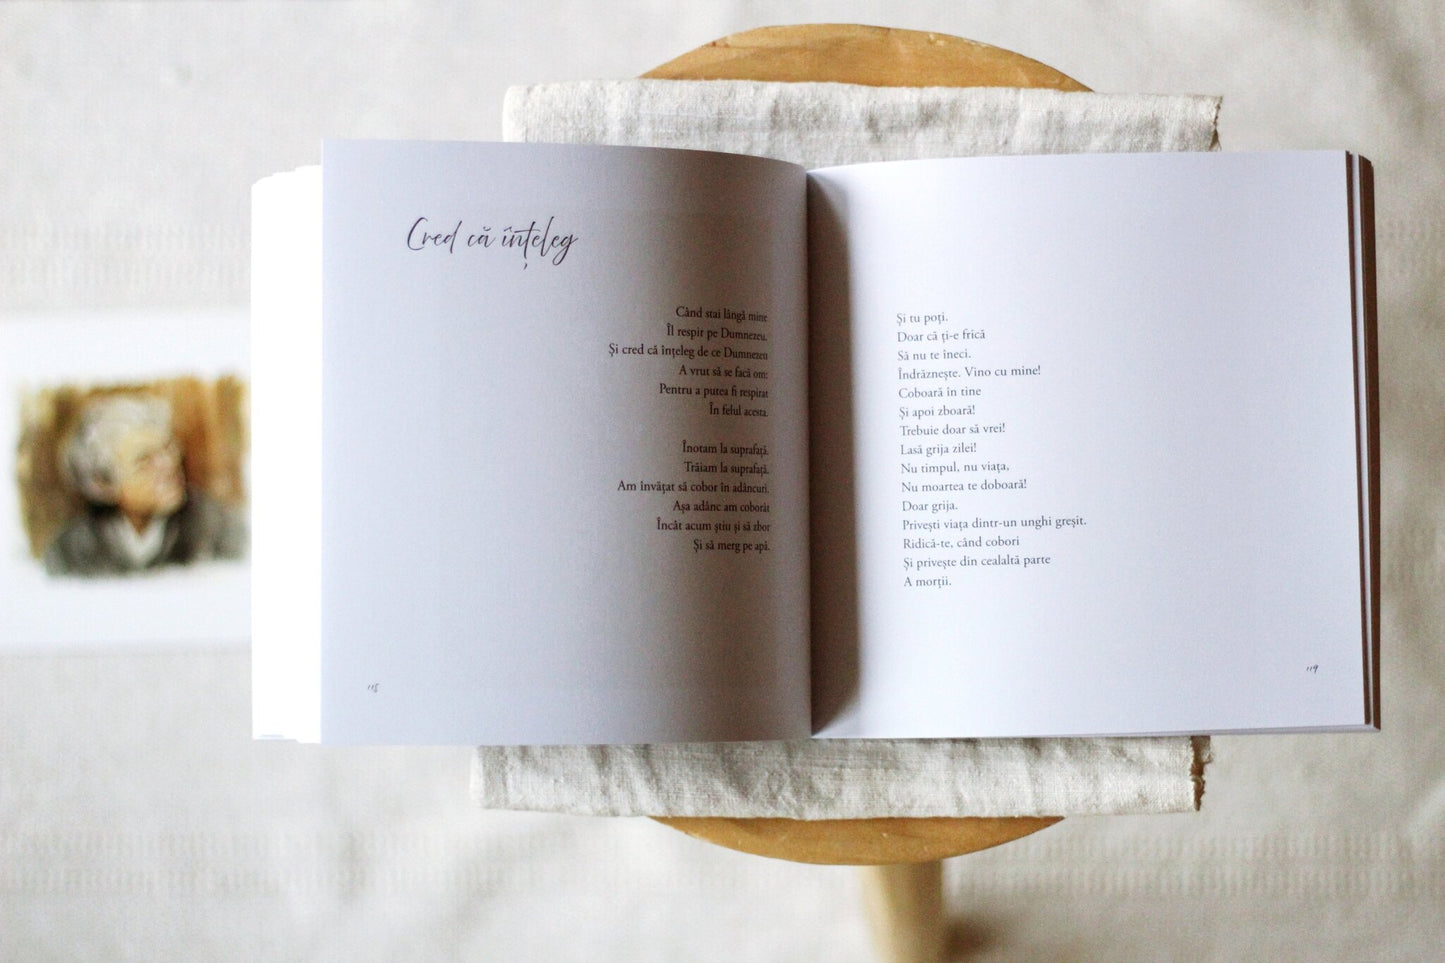 Cred că înțeleg
Când stai lângă mine
Îl respir pe Dumnezeu.
Și cred că înțeleg de ce Dumnezeu
A vrut să se facă om:
Pentru a putea fi respirat
În felul acesta.
Înotam la suprafață.
Trăiam la suprafață.
Am învățat să cobor în adâncuri.
Așa adânc am coborât
Încât acum știu și să zbor
Și să merg pe apă.
115
Și tu poți.
Doar că ți-e frică
Să nu te îneci.
Îndrăznește. Vino cu mine!
Coboară în tine
Și apoi zboară!
Trebuie doar să vrei!
Lasă grija zilei!
Nu timpul, nu viața,
Nu moartea te doboară!
Doar grija.
Privești viața dintr-un unghi greșit.
Ridică-te, când cobori
Și privește din cealaltă parte
A morții.
119